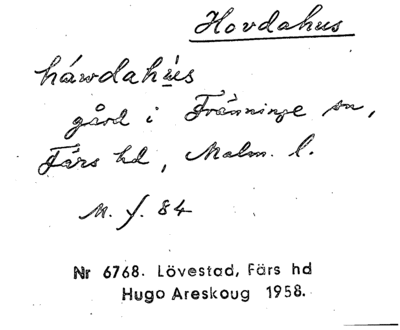 Hovdahus
háwdahús
gård i Tranninge sn,
Färs hd, Malm. l.
M. f. 84
Nr 6768. Lövestad, Färs hd
Hugo Areskoug 1958.